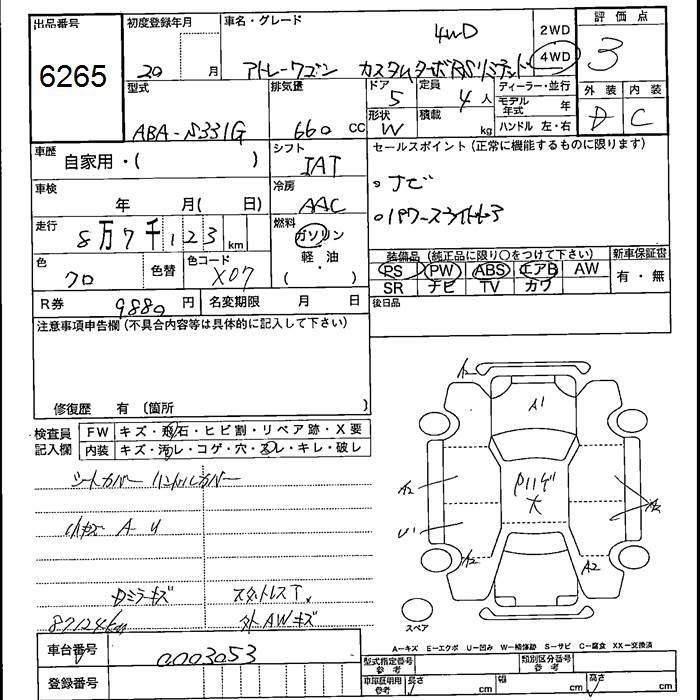 出品番号
6265
初度登録年月
20 月
車名・グレード
4WD
アトレーワゴン カスタムターボRSリミテッド
2WD
4WD
評価点
3
外装 内装
D C
型式
ABA-S331G
排気量
660 cc
ドア
5
定員
4人
形状
W
積載
kg
ディーラー・並行
モデル年式 年
ハンドル 左・右
車歴
自家用・( )
シフト
IAT
セールスポイント(正常に機能するものに限ります)
。ナビ
車検
年 月( 日)
冷房
AAC
走行
8万7千123km
燃料
ガソリン
・
軽油
( )
色
クロ
色替
色コード
X07
装備品(純正品に限り○をつけて下さい)
PS PW ABS エアB AW
SR ナビ TV カワ
新車保証書
有・無
R券
9880円
名変期限 月 日
後日品
注意事項申告欄(不具合内容等は具体的に記入して下さい)
修復歴 有(箇所 )
検査員記入欄
FW キズ・飛石・ヒビ割・リペア跡・X要
内装 キズ・汚レ・コゲ・穴・スレ・キレ・破レ
シートカバー ハンドルカバー
小キズ A U
Dミラーキズ スタットレスT
87124km 外AWキズ
A1
A2
A2
A2
スペア
A-キズ E-エクボ U-凹み W-補修跡 S-サビ C-腐食 XX-交換済
車台番号
0003053
登録番号
型式指定番号 参考
類別区分番号 参考
車庫証明用 参考
長さ cm
幅 cm
高さ cm